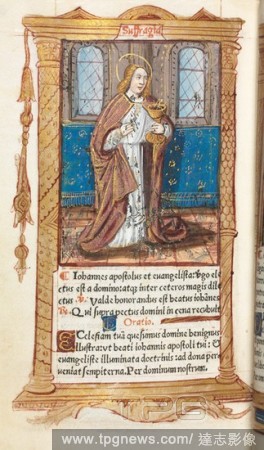 Suffragia
¶ Iohannes apostolus et euangelista virgo ele
ctus est a domino atqꝫ inter ceteros magis dile
ctus ℣. Valde honorandus est beatus iohānes
℟. Qui supra pectus domini in cena recubuit
Oratio.
Ecclesiam tuā quesumus domine benignus
illustra: vt beati iohannis apostoli tui: et
euangeliste illuminata doctrinis: ad dona per
ueniat sempiterna. Per dominum nostrum.
www.tpgnews.com / 達志影像